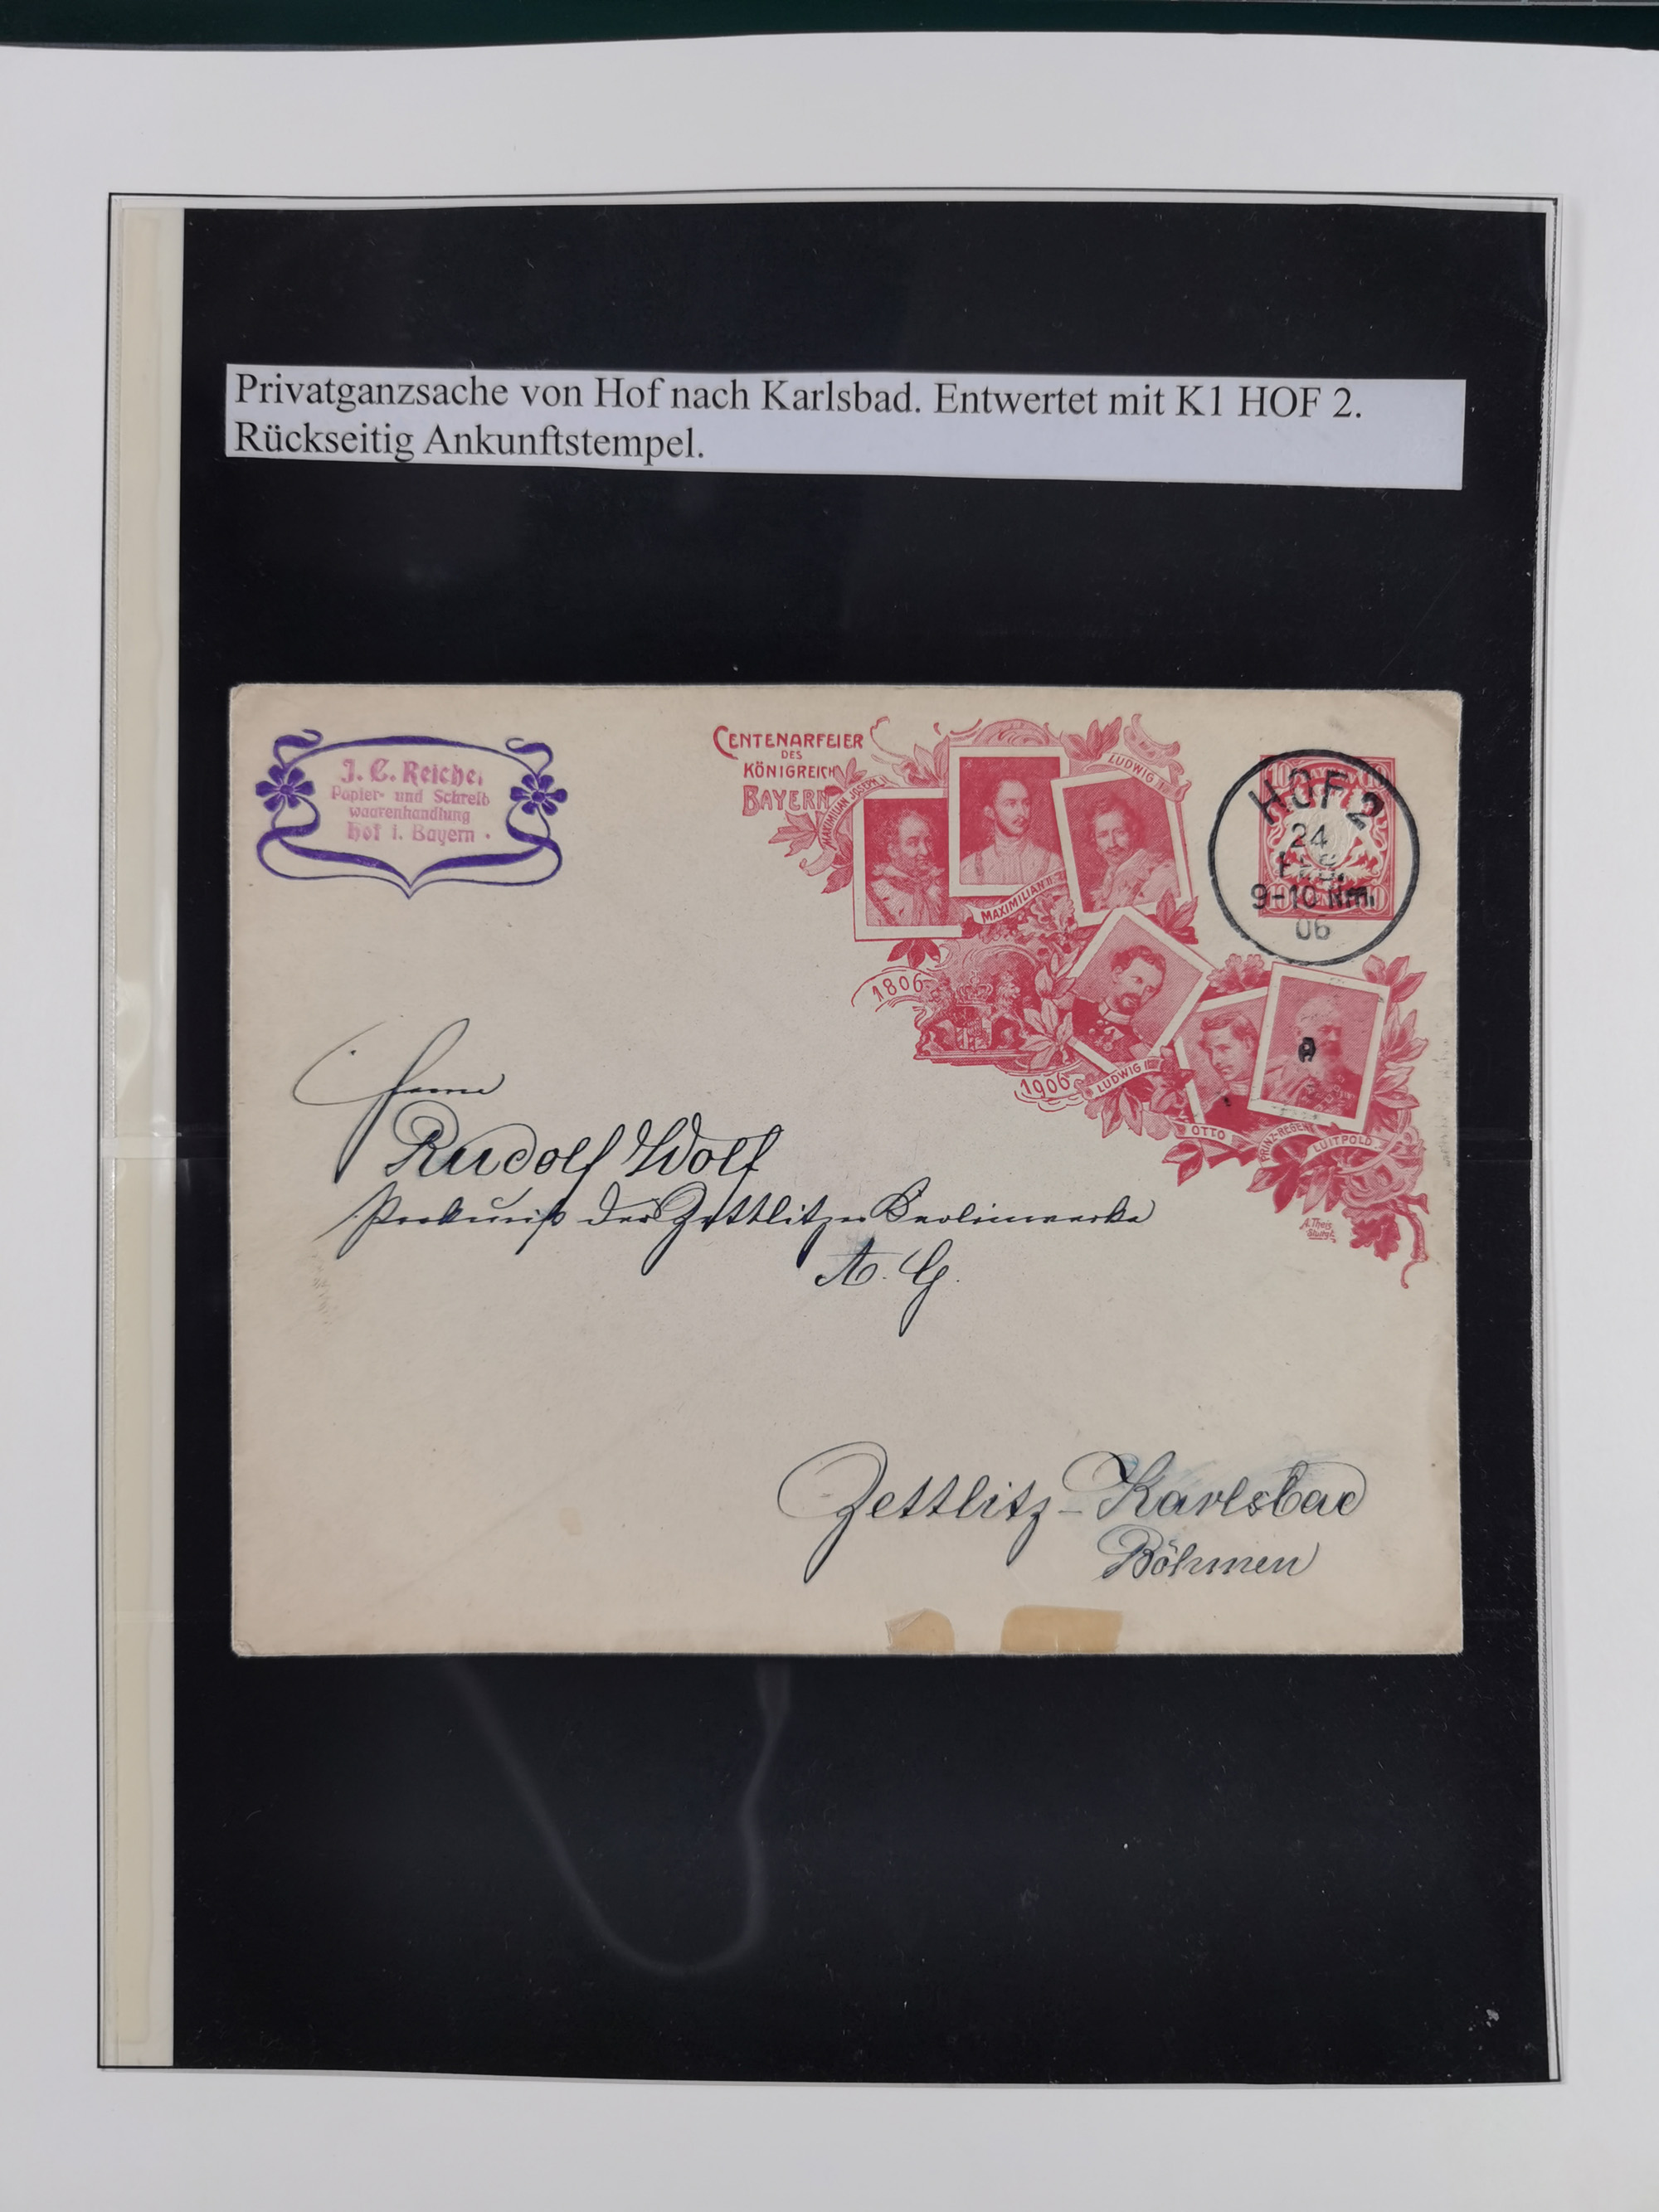 Privatganzsache von Hof nach Karlsbad. Entwertet mit K1 HOF 2.
Rückseitig Ankunftstempel.
J. C. Reichel
Papier- und Schreib
waarenhandlung
Hof i. Bayern.
CENTENARFEIER
DES
KÖNIGREICH
BAYERN
MAXIMILIAN JOSEPH
MAXIMILIAN II
LUDWIG I
1806
1906
LUDWIG II
OTTO
PRINZ-REGENT
LUITPOLD
A. Theis
Stuttgt.
HOF 2
24
FEB.
9-10 Nm.
06
10
10
Herrn
Rudolf Wolf
Prokurist der Zettlitzer Kaolinwerke
A. G.
Zettlitz-Karlsbad
Böhmen